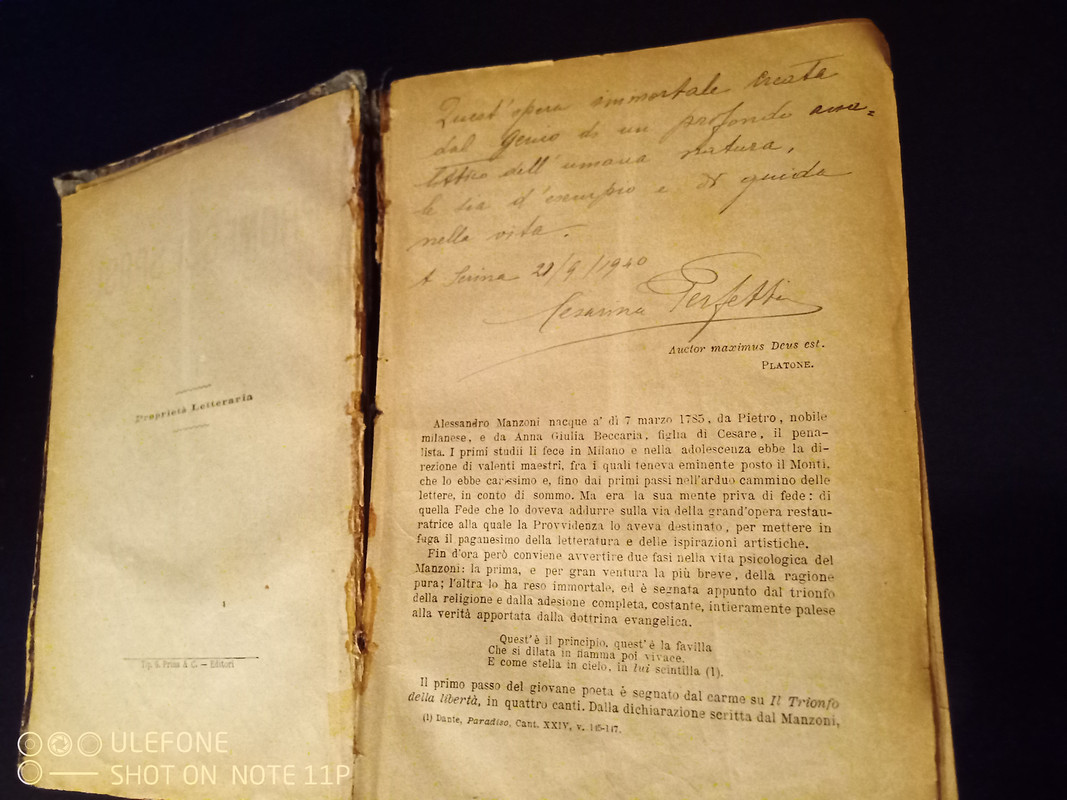 Proprietà Letteraria
Tip. S. Priss & C. — Editori
Quest'opera immortale creata
dal Genio di un profondo ana=
litico dell'umana natura,
le sia d'esempio e di guida
nella vita.
A Serina 21/9/1940
Cesarina Perfetti
Auctor maximus Deus est.
PLATONE.
Alessandro Manzoni nacque a' dì 7 marzo 1785, da Pietro, nobile
milanese, e da Anna Giulia Beccaria, figlia di Cesare, il pena-
lista. I primi studii li fece in Milano e nella adolescenza ebbe la di-
rezione di valenti maestri, fra i quali teneva eminente posto il Monti,
che lo ebbe carissimo e, fino dai primi passi nell'arduo cammino delle
lettere, in conto di sommo. Ma era la sua mente priva di fede: di
quella Fede che lo doveva addurre sulla via della grand'opera restau-
ratrice alla quale la Provvidenza lo aveva destinato, per mettere in
fuga il paganesimo della letteratura e delle ispirazioni artistiche.
Fin d'ora però conviene avvertire due fasi nella vita psicologica del
Manzoni: la prima, e per gran ventura la più breve, della ragione
pura; l'altra lo ha reso immortale, ed è segnata appunto dal trionfo
della religione e dalla adesione completa, costante, intieramente palese
alla verità apportata dalla dottrina evangelica.
Quest'è il principio, quest'è la favilla
Che si dilata in fiamma poi vivace.
E come stella in cielo, in lui scintilla (1).
Il primo passo del giovane poeta è segnato dal carme su Il Trionfo
della libertà, in quattro canti. Dalla dichiarazione scritta dal Manzoni,
(1) Dante, Paradiso, Cant. XXIV, v. 145-147.
ULEFONE
SHOT ON NOTE 11P